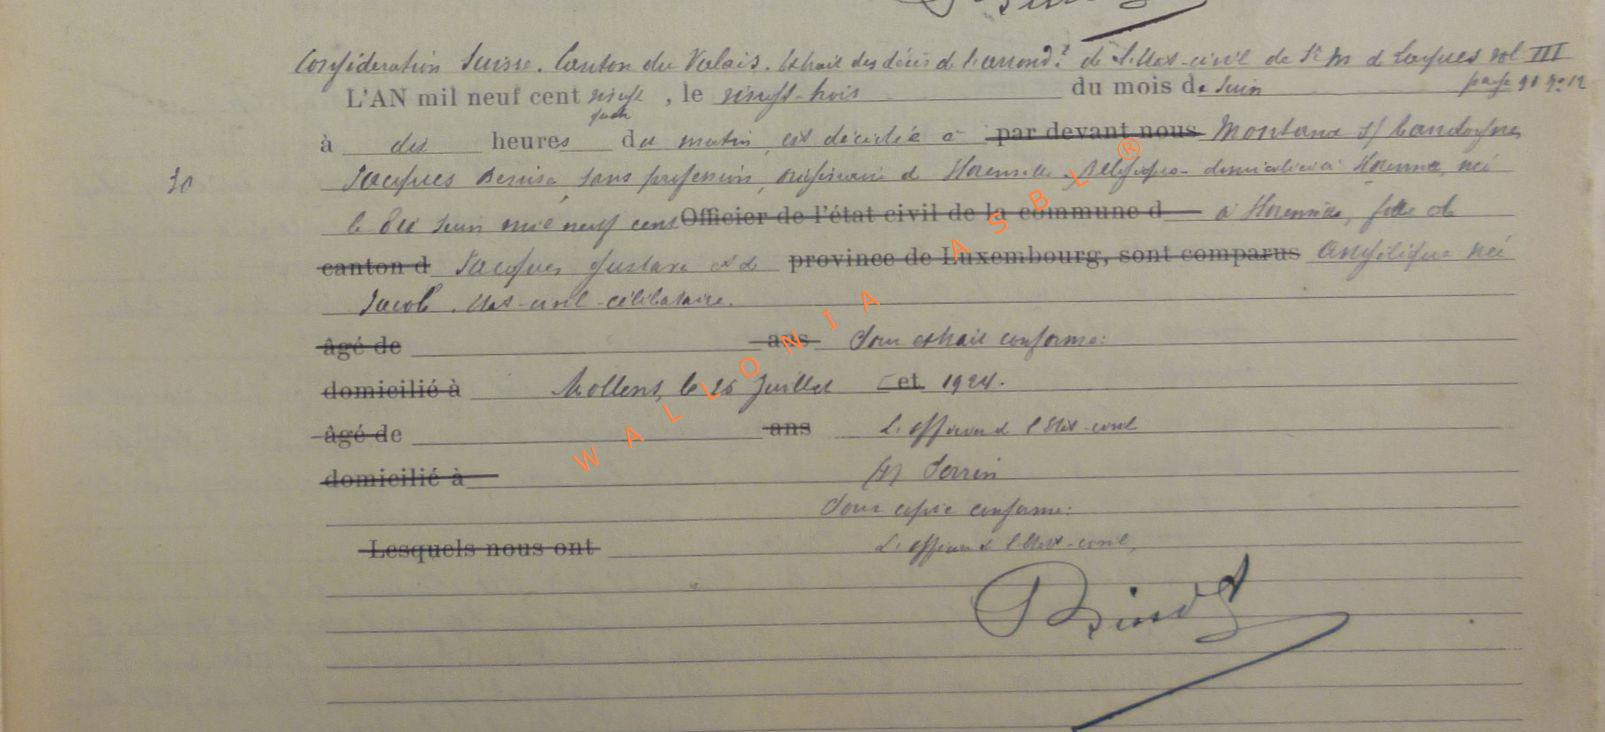 Confédération Suisse. Canton du Valais. Extrait des décès de l'arrond.t de l'Etat-civil de St M de Laques vol III
L'AN mil neuf cent vingt quatre, le vingt-trois du mois de Juin page 91 no 12
à dix heures du matin, est décédée à par devant nous Montana s/
10 Jacques Denise, sans profession, originaire d Belgique domiciliée à née
le dix Juin mil neuf cent Officier de l'état civil de la commune d à fille de
canton d Jacques Gustave et d province de Luxembourg, sont comparus Angélique née
Jacob. Etat-civil-célibataire.
âgé de ans Pour extrait conforme:
domicilié à Mollens, le 26 Juillet et 1924.
âgé de ans L'officier d l'Etat-civil
domicilié à (s) Perrin
Pour copie conforme:
Lesquels nous ont L'officier d l'Etat-civil,
WALLONIA ASBL ®